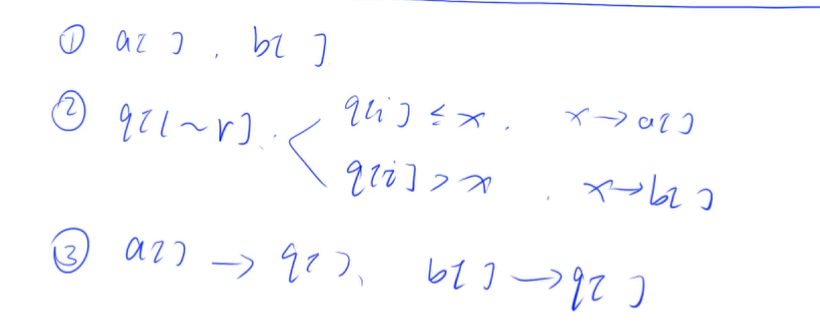 ① a[ ], b[ ]
② q[l~r]. q[i] ≤ x. x→a[ ]
q[i] > x. x→b[ ]
③ a[ ] → q[ ]、 b[ ] → q[ ]